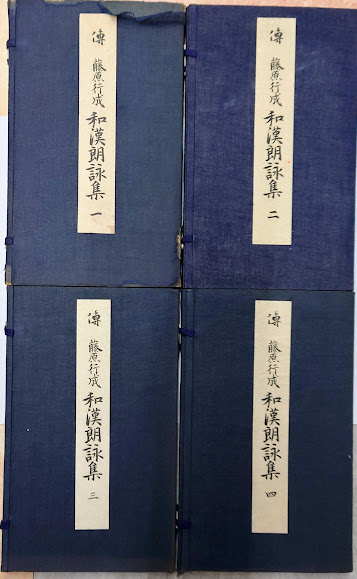 傳 藤原行成 和漢朗詠集 一
傳 藤原行成 和漢朗詠集 二
傳 藤原行成 和漢朗詠集 三
傳 藤原行成 和漢朗詠集 四